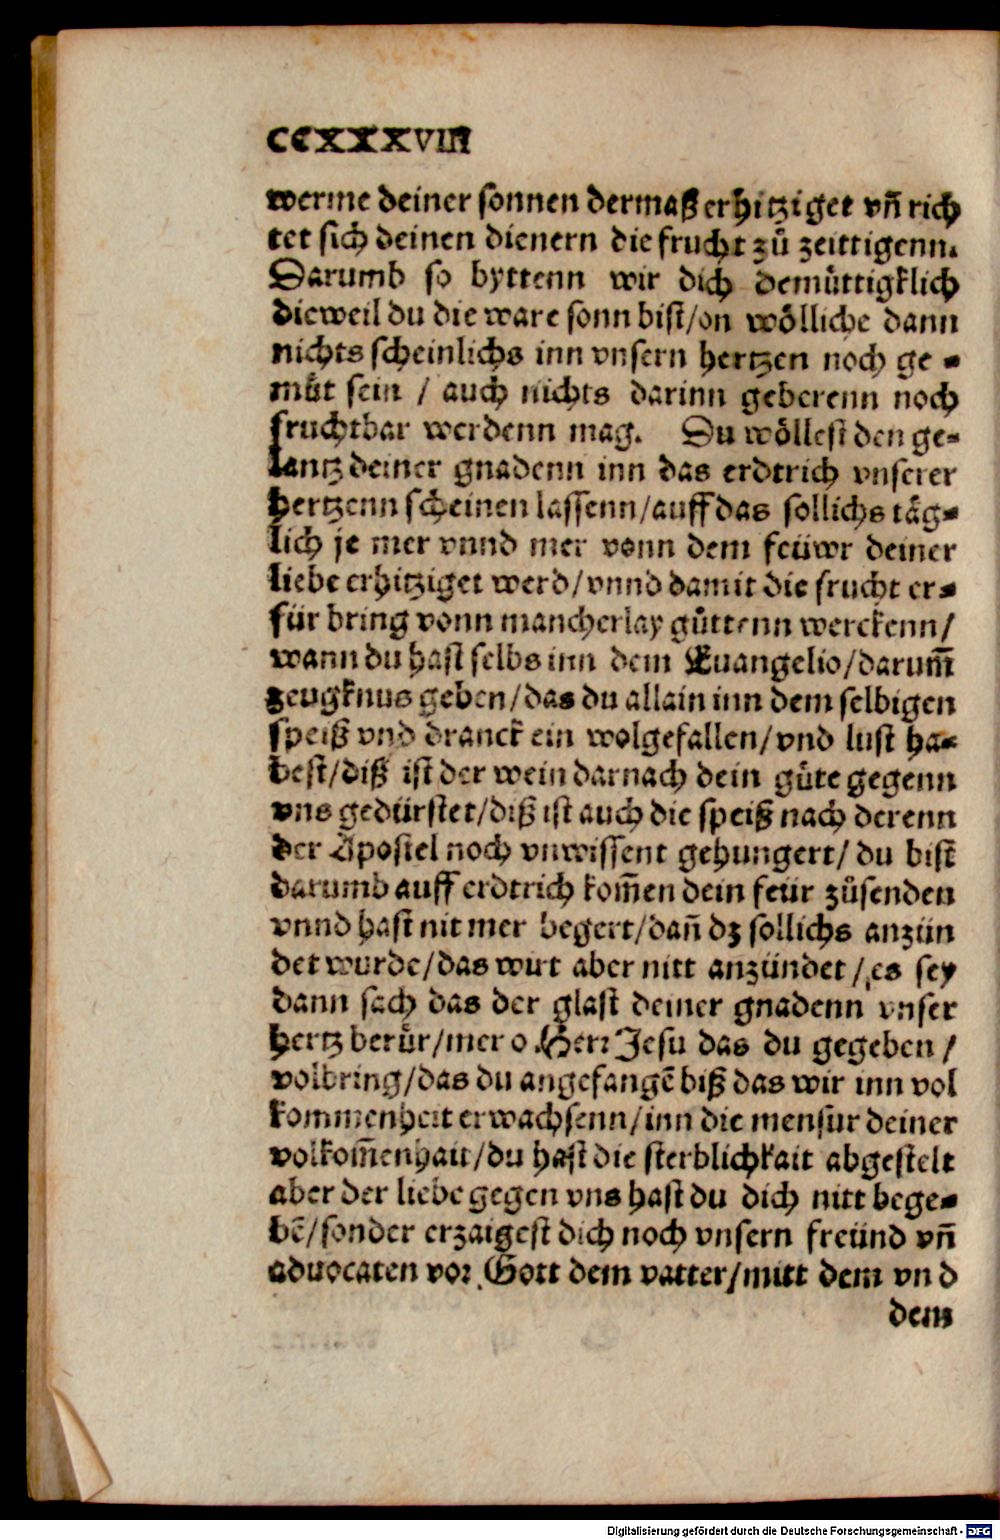 CCXXXVIII
werme deiner sonnen dermaß erhitziget vñ rich
tet sich deinen dienern die frucht zů zeittigenn.
Darumb so byttenn wir dich demůttigklich
dieweil du die ware sonn bist/on wölliche dann
nichts scheinlichs inn vnsern hertzen noch ge-
můt sein / auch nichts darinn geberenn noch
fruchtbar werdenn mag. Du wöllest den ge-
lantz deiner gnadenn inn das erdtrich vnserer
hertzenn scheinen lassenn/auff das sollichs täg-
lich je mer vnnd mer vonn dem feüwr deiner
liebe erhitziget werd/vnnd damit die frucht er-
für bring vonn mancherlay gůttenn werckenn/
wann du hast selbs inn dem Euangelio/darum̃
zeugknus geben/das du allain inn dem selbigen
speiß vnd dranck ein wolgefallen/vnd lust ha-
best/diß ist der wein darnach dein gůte gegenn
vns gedürstet/diß ist auch die speiß nach derenn
der Apostel noch vnwissent gehungert/ du bist
darumb auff erdtrich kom̃en dein feür zůsenden
vnnd hast nit mer begert/dañ dz sollichs anzün
det wurde/das wirt aber nitt anzündet/es sey
dann sach das der glast deiner gnadenn vnser
hertz berůr/mer o Herr Jesu das du gegeben /
volbring/das du angefangẽ biß das wir inn vol
kommenheit erwachsenn/inn die mensur deiner
volkom̃enhait/du hast die sterblichkait abgestelt
aber der liebe gegen vns hast du dich nitt bege-
bẽ/sonder erzaigest dich noch vnsern freünd vñ
aduocaten vor Gott dem vatter/mitt dem vnd
dem
Digitalisierung gefördert durch die Deutsche Forschungsgemeinschaft - DFG